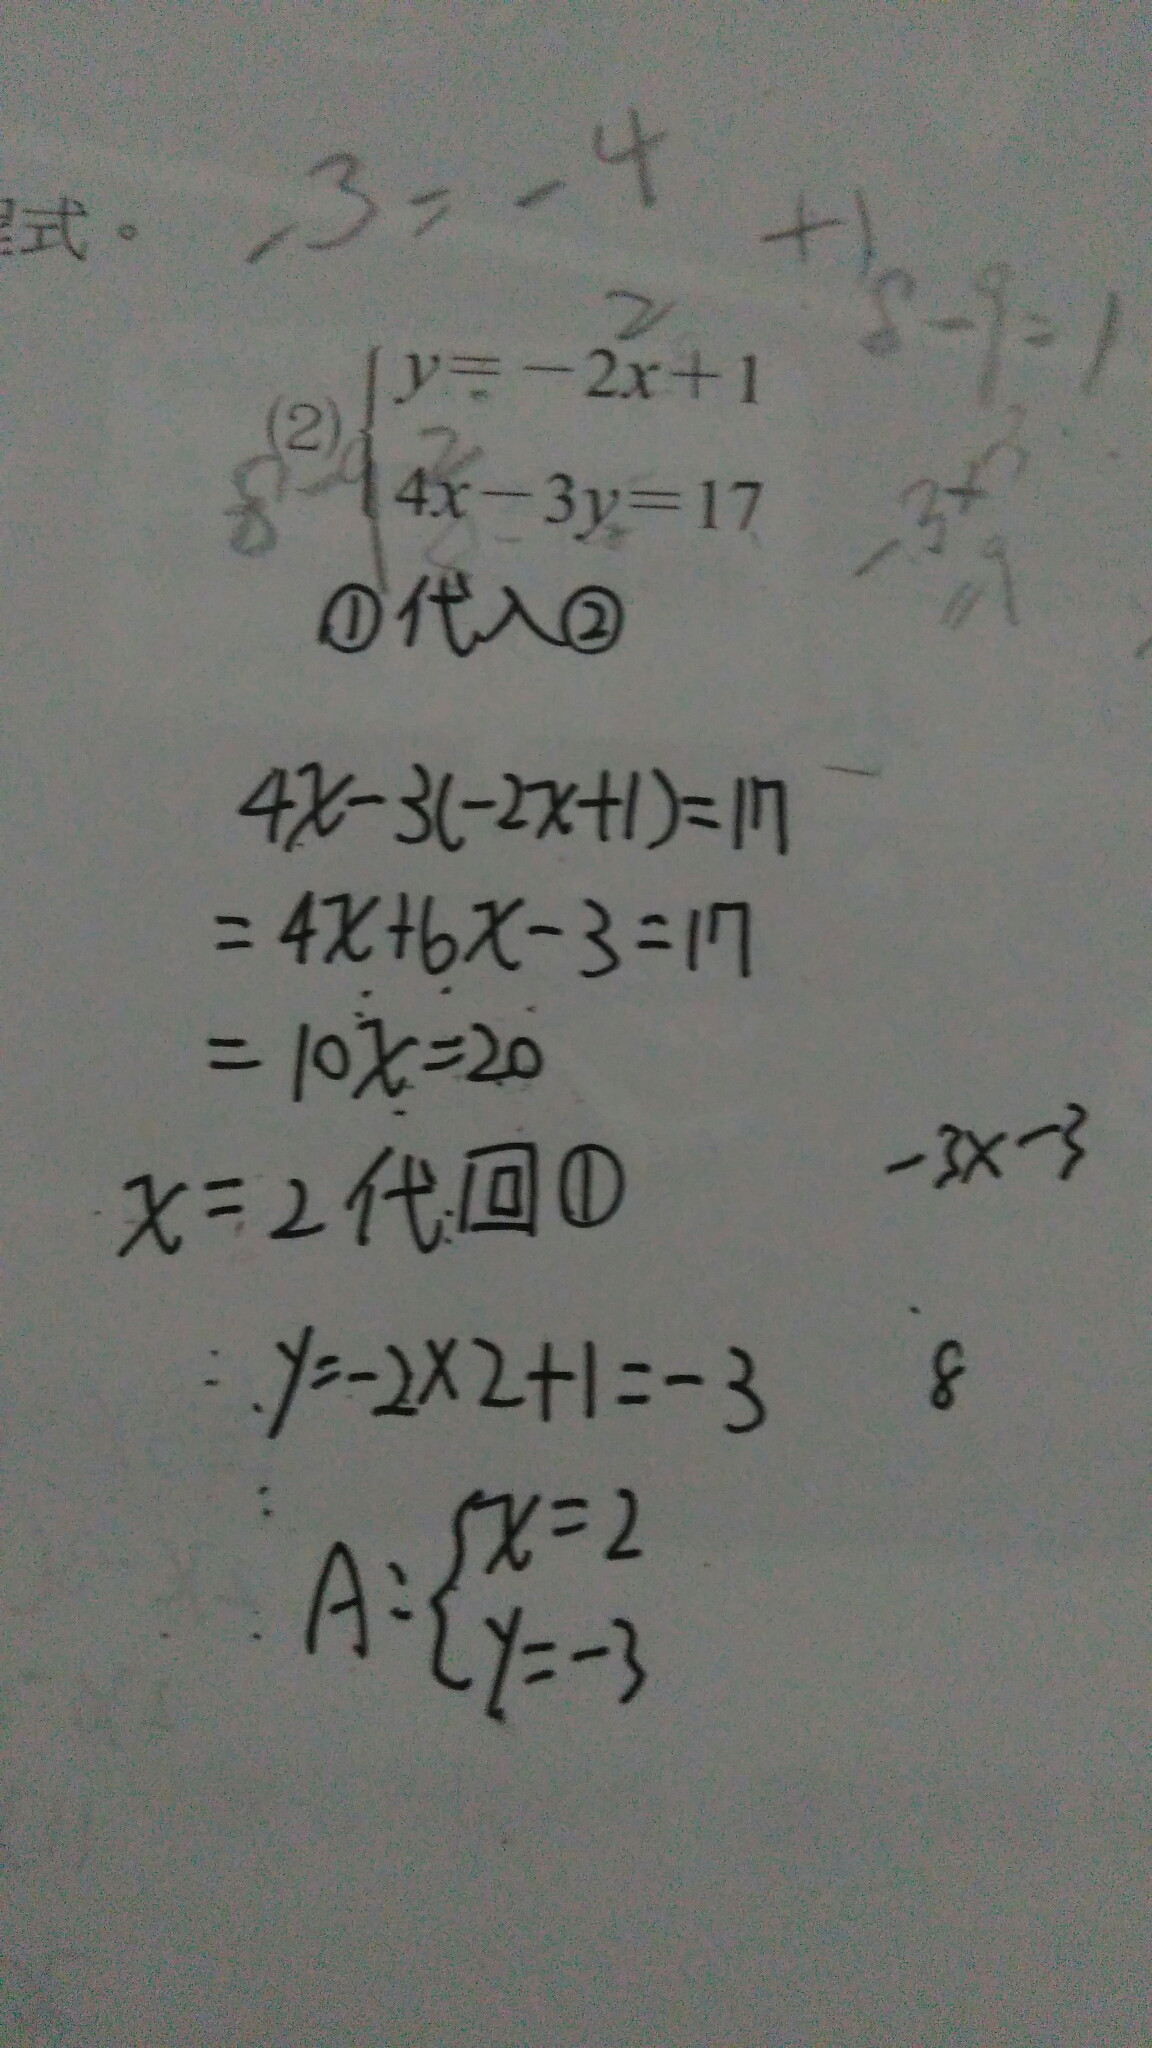 式。
-3=-4
+1
8-9=1
2
(2) { y=-2x+1
2
4x-3y=17
①代入②
4x-3(-2x+1)=17
=4x+6x-3=17
=10x=20
x=2代回①
-3x-3
y=-2×2+1=-3
8
A:{ x=2
y=-3